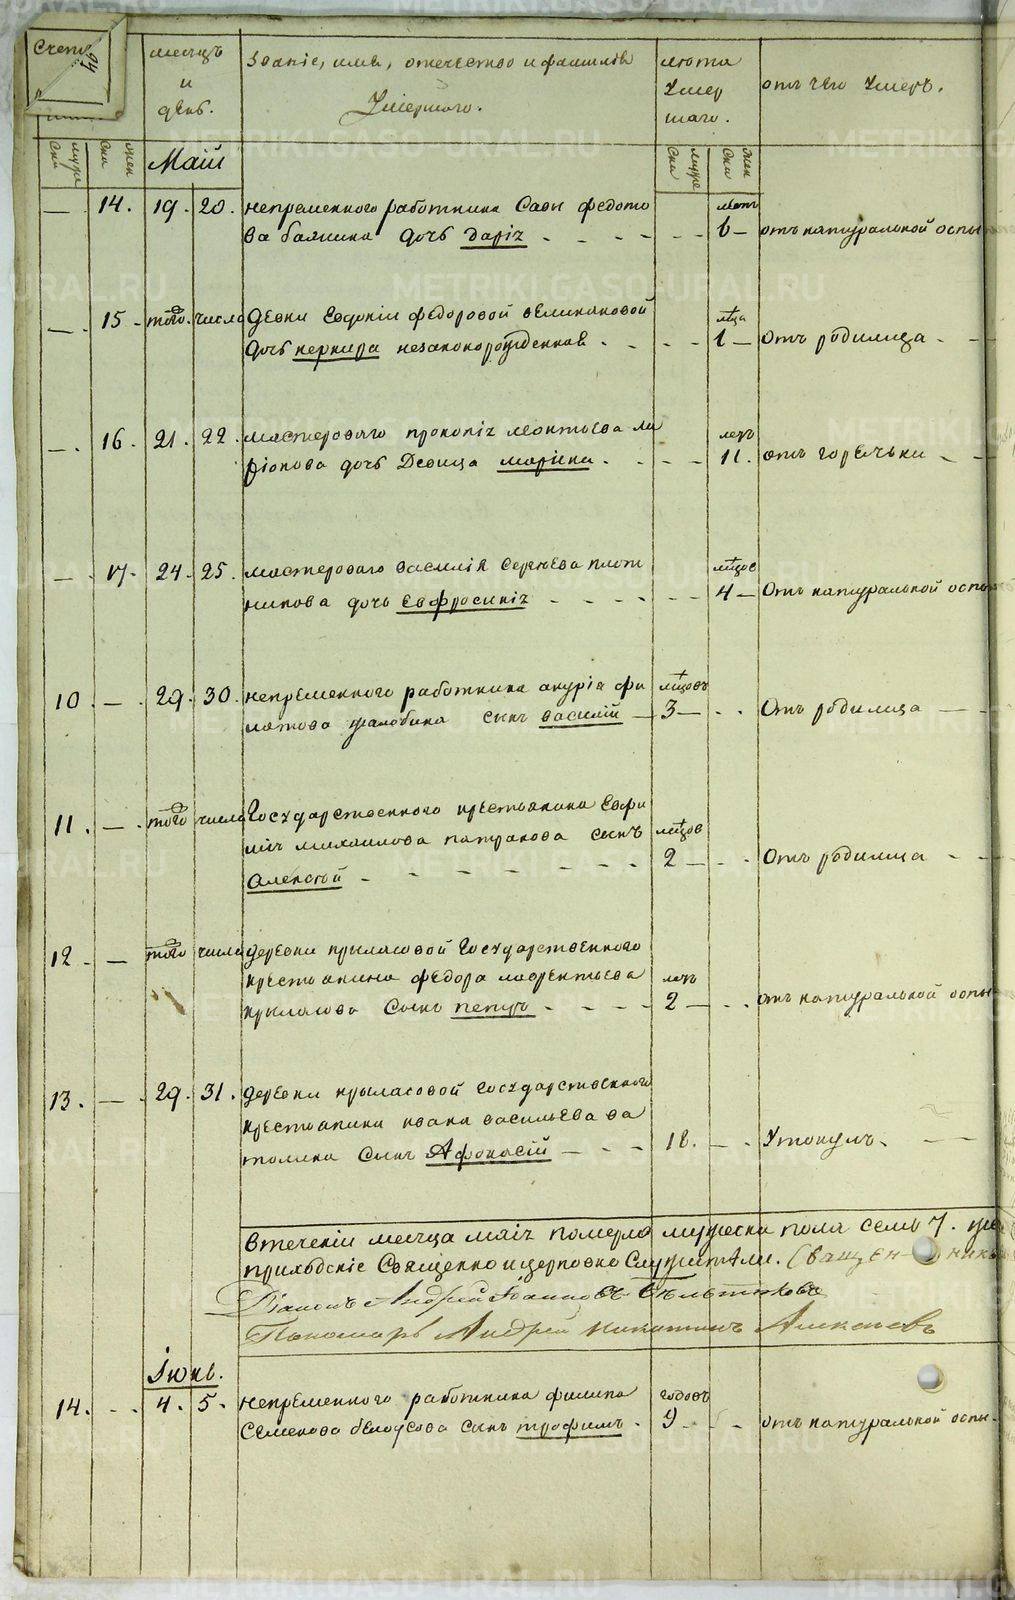 Счетъ
94
месяцъ
и
день.
Званіе, имя, отечество и фамилія
Умершаго.
лѣта
Умер
шаго.
отъ чего Умеръ.
муже
ска
жен
ска
Маій
муже
ска
жен
ска
— 14. 19. 20. непременного работника Савы федото
ва баянина дочь дарія - - - - летъ 6 — отъ натуральной оспы
— 15 - того числа девки Евдокіи федоровой великановой
дочь керкира незаконорожденная - - - мѣца 1 — Отъ родимца - -
— 16. 21. 22. мастероваго прокопія леонтьева ла
ріонова дочь Девица маріяна - - - летъ 11. отъ горячьки - -
— 17. 24. 25. мастероваго василія Сергѣева плот
никова дочь Евфросинія - - - - мѣцов 4 — Отъ натуральной оспы
10 — 29. 30. непременного работника гурія фи
латова жалобина сынъ василій — мѣцовъ 3 — Отъ родимца — —
11. — того числа Государственного крестьянина Ефи
мія михаилова патракова сынъ
Алексѣй - - - - - - - мѣцов 2 — Отъ родимца - -
12 — того числа деревни крыласовой Государственного
крестьянина федора лаврентьева
крыласова Сынъ петръ - - - - летъ 2 — отъ натуральной оспы
13. — 29. 31. деревни крыласовой государственного
крестьянина ивана васильева ва
толина Сынъ Афонасій — - - 18. — Утонулъ. - —
втеченіи месеца маія померло мужеска пола семь 7. же
приходскіе Священно и церковно Служители. Священникъ
Діаконъ Андрей Іоанновъ
Пономарь Андрей никитинъ Алексѣевъ
Іюнь.
14. - - 4. 5. непременного работника филипа
Семенова белоусова сынъ трофимъ - годовъ 9 - - отъ натуральной оспы.
METRIKI.GASO-URAL.RU